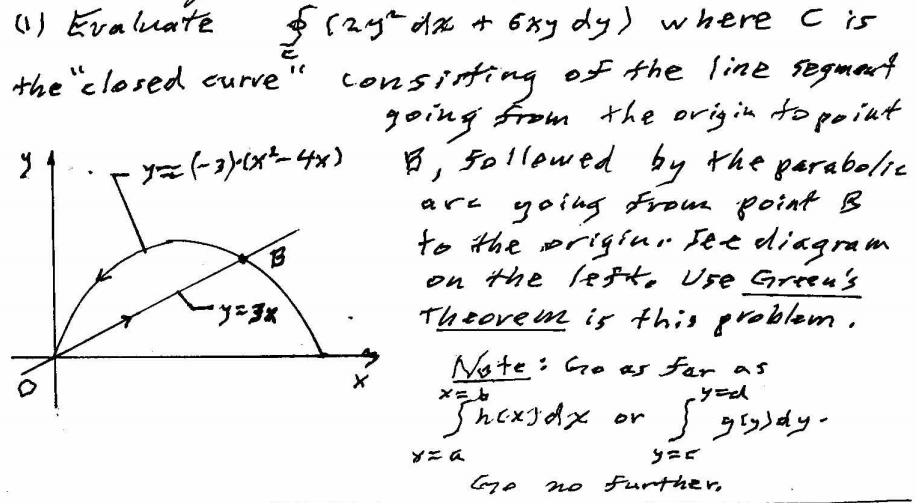 (1) Evaluate ∮ (2y² dx + 6xy dy) where C is
C
the "closed curve" consisting of the line segment
going from the origin to point
B, followed by the parabolic
arc going from point B
to the origin. See diagram
on the left. Use Green's
Theorem is this problem.
y
y = (-3)·(x²-4x)
B
y=3x
O
x
Note: Go as far as
x=b y=d
∫ h(x)dx or ∫ g(y)dy.
x=a y=c
Go no further.